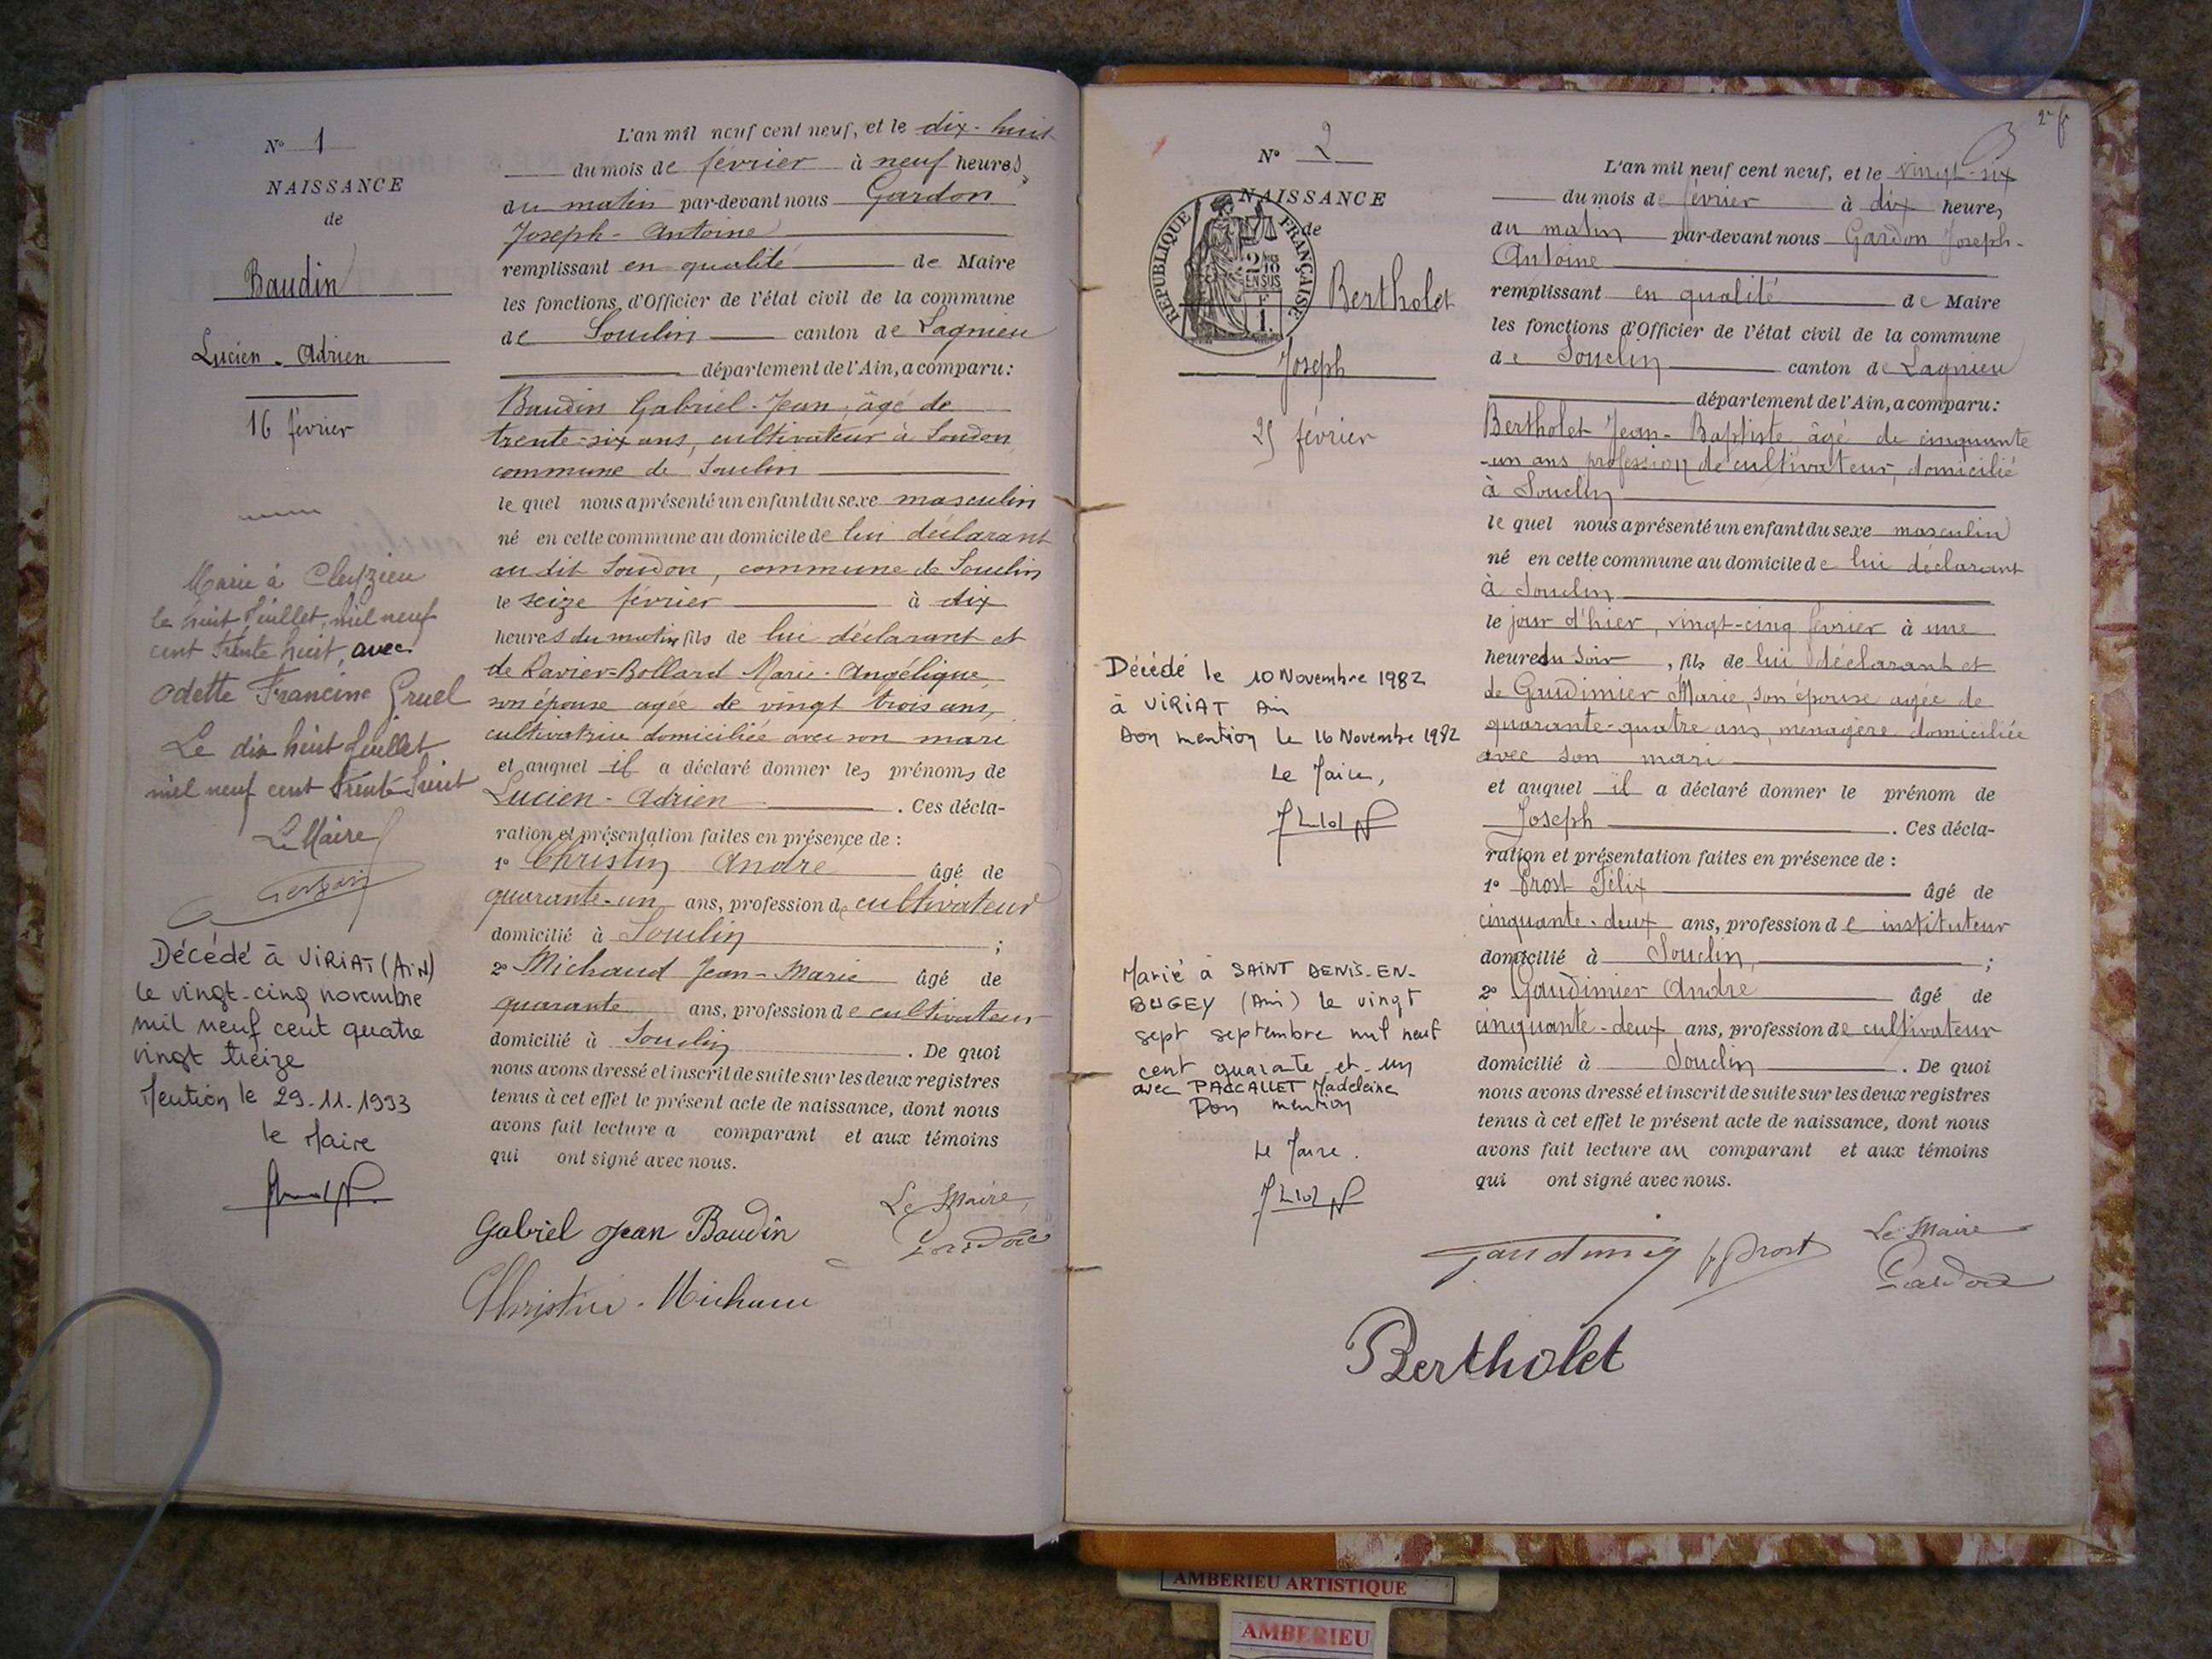 N° 1
NAISSANCE
de
Baudin
Lucien - Adrien
16 février
Marié à Cleyzieu
le huit Juillet mil neuf
cent trente huit, avec
Odette Francine Gruel
Le dix huit Juillet
mil neuf cent trente huit
Le Maire
Décédé à VIRIAT (AiN)
le vingt-cinq novembre
mil neuf cent quatre
vingt treize
Mention le 29.11.1993
le Maire
L'an mil neuf cent neuf, et le dix-huit
du mois de février à neuf heures
du matin par-devant nous Gardon
Joseph - Antoine
remplissant en qualité de Maire
les fonctions d'Officier de l'état civil de la commune
de Souclin canton de Lagnieu
département de l'Ain, a comparu :
Baudin Gabriel-Jean, âgé de
trente-six ans, cultivateur à Soudon
commune de Souclin
le quel nous a présenté un enfant du sexe masculin
né en cette commune au domicile de lui déclarant
au dit Soudon, commune de Souclin
le seize février à dix
heures du matin fils de lui déclarant et
de Ravier-Bollard Marie-Angélique,
son épouse agée de vingt trois ans,
cultivatrice domiciliée avec son mari
et auquel il a déclaré donner les prénoms de
Lucien - Adrien . Ces décla-
ration et présentation faites en présence de :
1° Christin André âgé de
quarante-un ans, profession de cultivateur
domicilié à Souclin ;
2° Michaud Jean-Marie âgé de
quarante ans, profession de cultivateur
domicilié à Souclin . De quoi
nous avons dressé et inscrit de suite sur les deux registres
tenus à cet effet le présent acte de naissance, dont nous
avons fait lecture a comparant et aux témoins
qui ont signé avec nous.
Le Maire,
Gabriel Jean Baudin
Gardon
Christin - Michaud
2e f
N° 2
NAISSANCE
de
REPUBLIQUE FRANÇAISE
2/10 EN SUS
1 F.
Bertholet
Joseph
25 février
Décédé le 10 Novembre 1982
à VIRIAT Ain
Don mention le 16 Novembre 1982
Le Maire,
Marié à SAINT DENIS-EN-
BUGEY (Ain) le vingt
sept septembre mil neuf
cent quarante et un
avec PACCALLET Madeleine
Don mention
Le Maire.
L'an mil neuf cent neuf, et le vingt-six
du mois de février à dix heures
du matin par-devant nous Gardon Joseph-
Antoine
remplissant en qualité de Maire
les fonctions d'Officier de l'état civil de la commune
de Souclin canton de Lagnieu
département de l'Ain, a comparu :
Bertholet Jean-Baptiste âgé de cinquante
-un ans profession de cultivateur, domicilié
à Souclin
le quel nous a présenté un enfant du sexe masculin
né en cette commune au domicile de lui déclarant
à Souclin
le jour d'hier, vingt-cinq février à une
heure du soir, fils de lui déclarant et
de Gaudimier Marie, son épouse agée de
quarante-quatre ans, ménagère domiciliée
avec son mari
et auquel il a déclaré donner le prénom de
Joseph . Ces décla-
ration et présentation faites en présence de :
1° Prost Félix âgé de
cinquante-deux ans, profession de instituteur
domicilié à Souclin ;
2° Gaudimier André âgé de
cinquante-deux ans, profession de cultivateur
domicilié à Souclin . De quoi
nous avons dressé et inscrit de suite sur les deux registres
tenus à cet effet le présent acte de naissance, dont nous
avons fait lecture au comparant et aux témoins
qui ont signé avec nous.
Le Maire
Prost
Gardon
Bertholet
AMBERIEU ARTISTIQUE
AMBERIEU